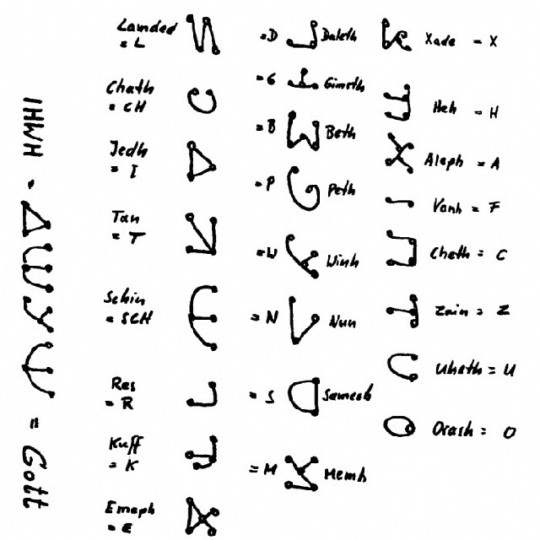 IHWH = = Gott
Lamded
= L
Chath
= CH
Jedh
= I
Tan
= T
Schin
= SCH
Res
= R
Kuff
= K
Emaph
= E
= D Daleth
= G Gimeth
= B Beth
= P Peth
= W Winh
= N Nun
= S Samech
= M Memh
Xade = X
Heh = H
Aleph = A
Vanh = F
Cheth = C
Zain = Z
Uheth = U
Orash = O